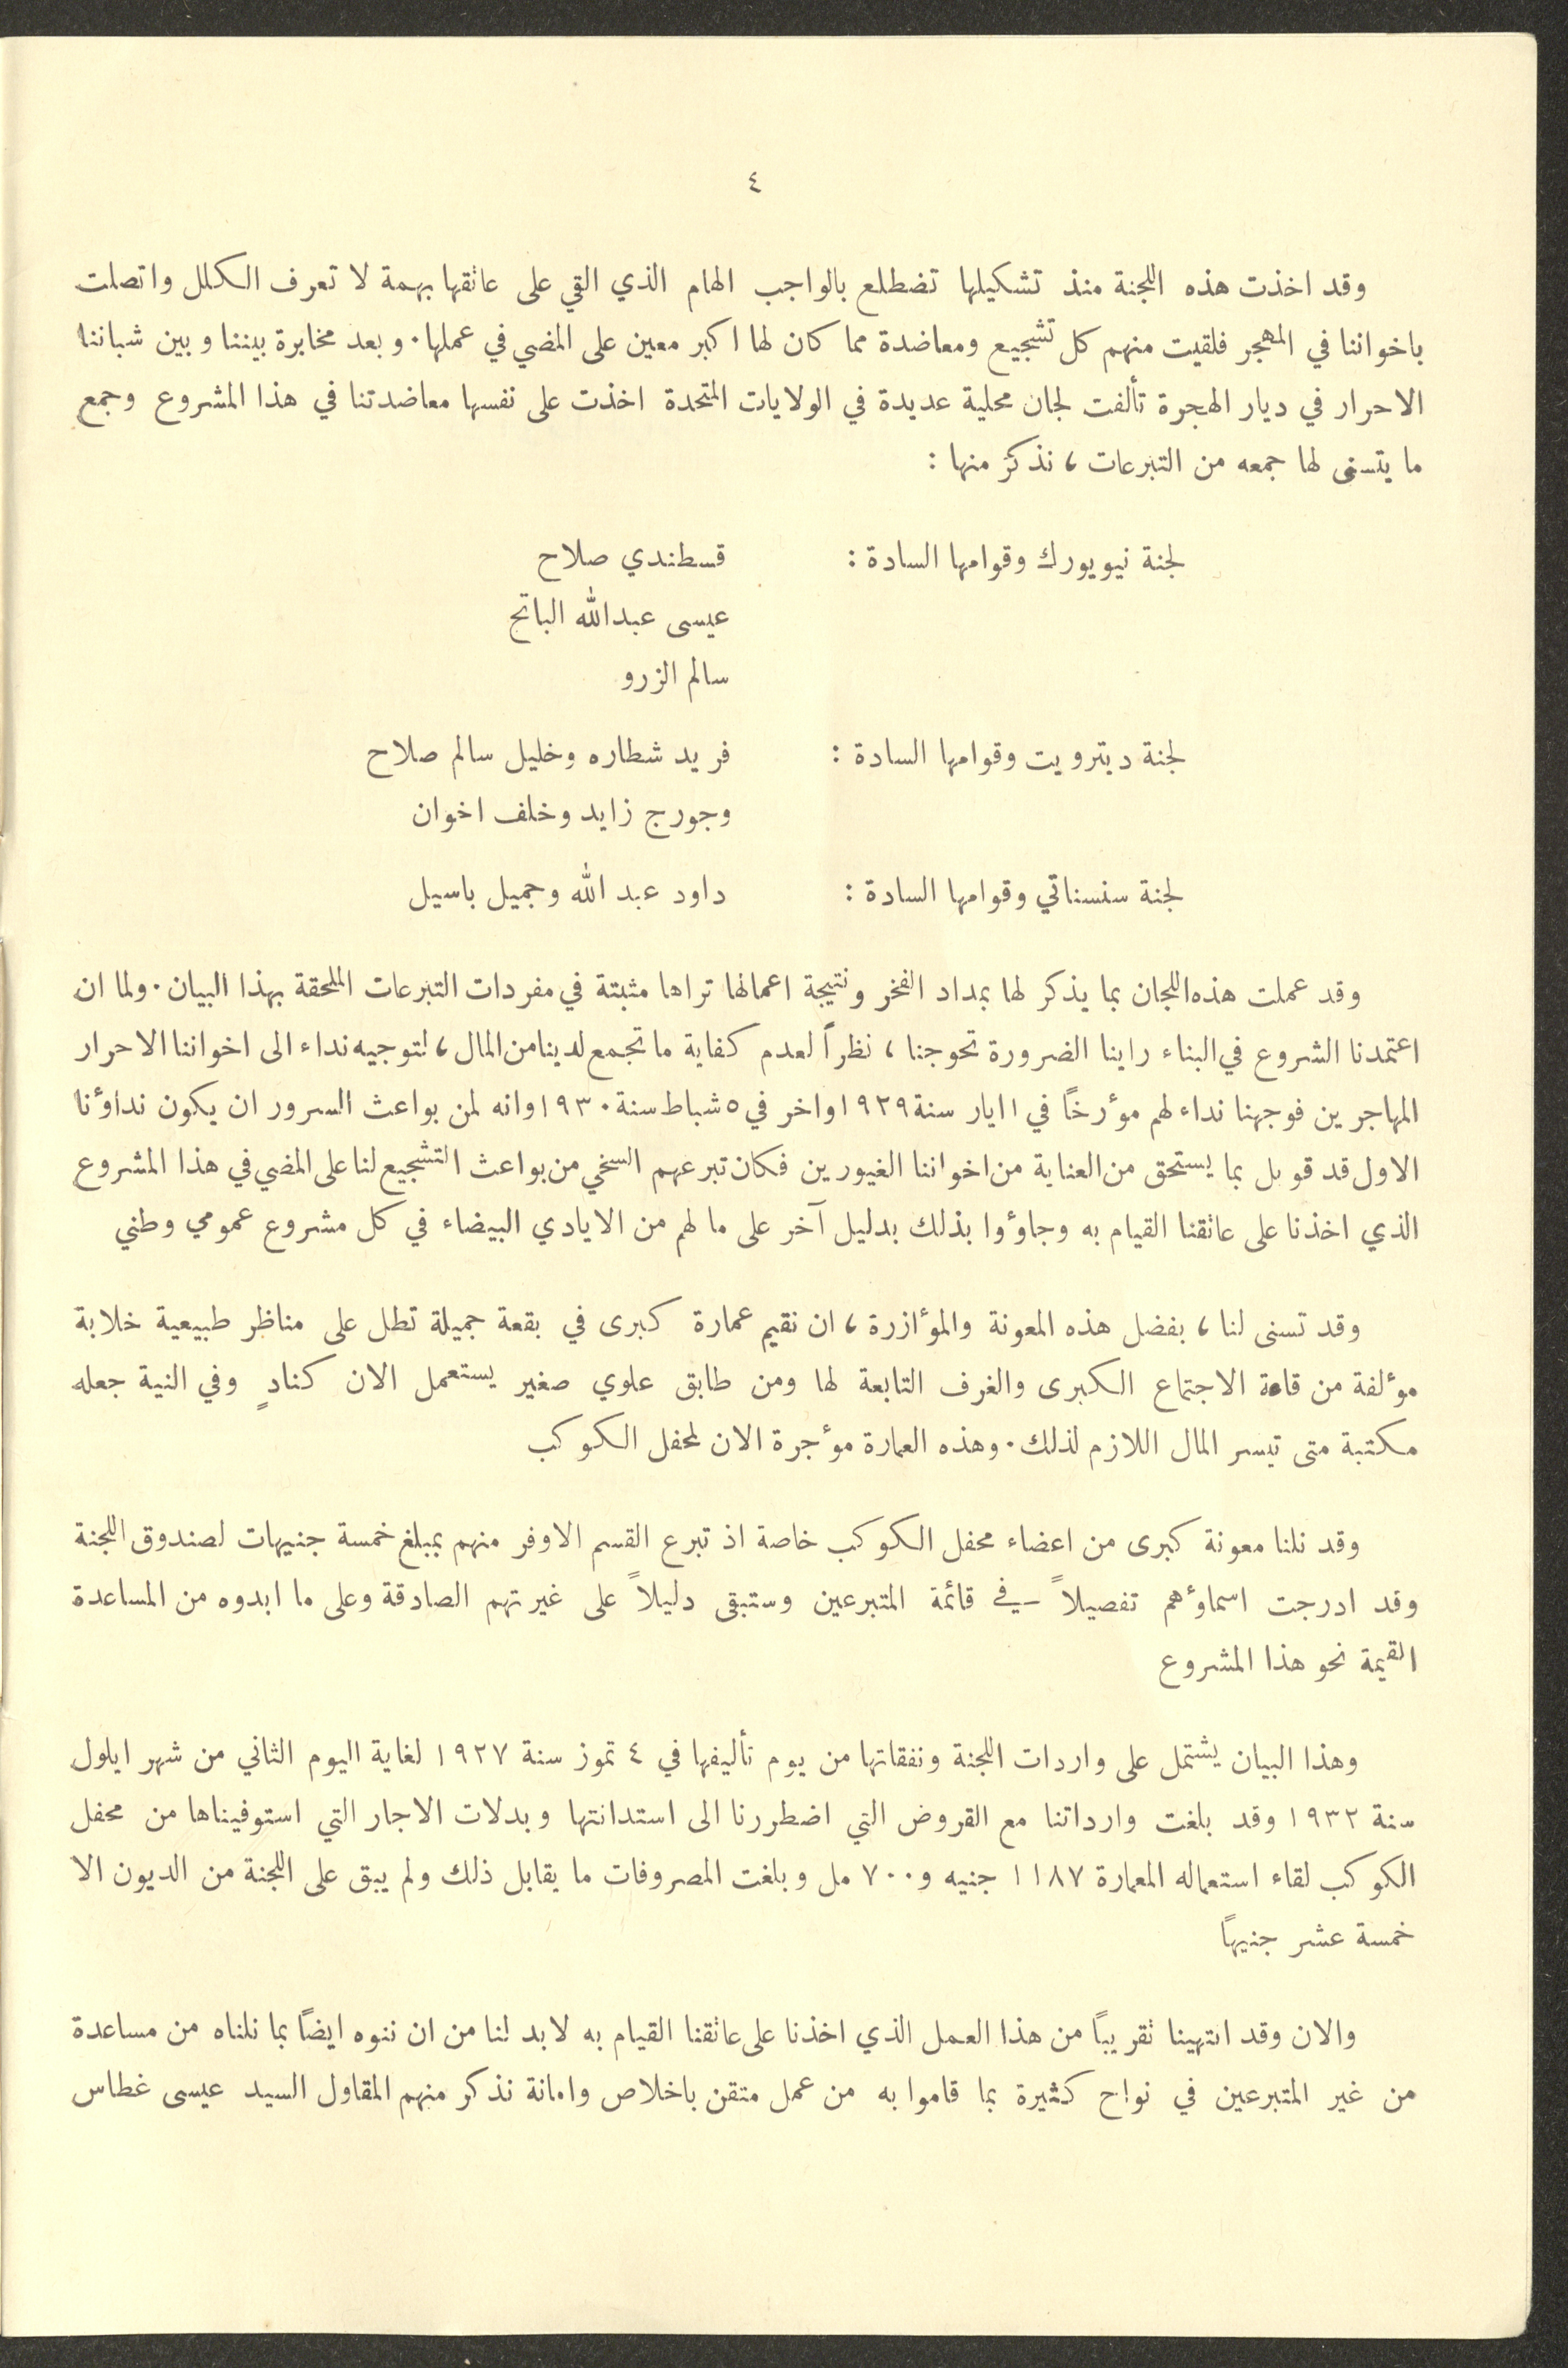 ٤
وقد اخذت هذه اللجنة منذ تشكيلها تضطلع بالواجب الهام الذي القي على عاتقها بهمة لا تعرف الكلل واتصلت
باخواننا في المهجر فلقيت منهم كل تشجيع ومعاضدة مما كان لها اكبر معين على المضي في عملها. وبعد مخابرة بيننا وبين شباننا
الاحرار في ديار الهجرة تألفت لجان محلية عديدة في الولايات المتحدة اخذت على نفسها معاضدتنا في هذا المشروع وجمع
ما يتسنى لها جمعه من التبرعات، نذكر منها:
لجنة نيويورك وقوامها السادة: قسطندي صلاح
عيسى عبدالله الباتح
سالم الزرو
لجنة ديترويت وقوامها السادة: فريد شطاره وخليل سالم صلاح
وجورج زايد وخلف اخوان
لجنة سنسناتي وقوامها السادة: داود عبد الله وجميل باسيل
وقد عملت هذه اللجان بما يذكر لها بمداد الفخر ونتيجة اعمالها تراها مثبتة في مفردات التبرعات الملحقة بهذا البيان. ولما ان
اعتمدنا الشروع في البناء راينا الضرورة تحوجنا، نظراً لعدم كفاية ما تجمع لدينا من المال، لتوجيه نداء الى اخواننا الاحرار
المهاجرين فوجهنا نداء لهم موٴرخاً في ١ ايار سنة ١٩٢٩ واخر في ٥ شباط سنة ١٩٣٠ وانه لمن بواعث السرور ان يكون نداوٴنا
الاول قد قوبل بما يستحق من العناية من اخواننا الغيورين فكان تبرعهم السخي من بواعث التشجيع لنا على المضي في هذا المشروع
الذي اخذنا على عاتقنا القيام به وجاوٴوا بذلك بدليل آخر على ما لهم من الايادي البيضاء في كل مشروع عمومي وطني
وقد تسنى لنا، بفضل هذه المعونة والموٴازرة، ان نقيم عمارة كبرى في بقعة جميلة تطل على مناظر طبيعية خلابة
موٴلفة من قاعة الاجتماع الكبرى والغرف التابعة لها ومن طابق علوي صغير يستعمل الان كنادٍ وفي النية جعله
مكتبة متى تيسر المال اللازم لذلك. وهذه العمارة موٴجرة الان لمحفل الكوكب
وقد نلنا معونة كبرى من اعضاء محفل الكوكب خاصة اذ تبرع القسم الاوفر منهم بمبلغ خمسة جنيهات لصندوق اللجنة
وقد ادرجت اسماوٴهم تفصيلاً في قائمة المتبرعين وستبقى دليلاً على غيرتهم الصادقة وعلى ما ابدوه من المساعدة
القيمة نحو هذا المشروع
وهذا البيان يشتمل على واردات اللجنة ونفقاتها من يوم تأليفها في ٤ تموز سنة ١٩٢٧ لغاية اليوم الثاني من شهر ايلول
سنة ١٩٣٢ وقد بلغت وارداتنا مع القروض التي اضطررنا الى استدانتها وبدلات الاجار التي استوفيناها من محفل
الكوكب لقاء استعماله المعمارة ١١٨٧ جنيه و٧٠٠ مل وبلغت المصروفات ما يقابل ذلك ولم يبق على اللجنة من الديون الا
خمسة عشر جنيهاً
والان وقد انتهينا تقريباً من هذا العمل الذي اخذنا على عاتقنا القيام به لا بد لنا من ان ننوه ايضاً بما نلناه من مساعدة
من غير المتبرعين في نواح كثيرة بما قاموا به من عمل متقن باخلاص وامانة نذكر منهم المقاول السيد عيسى غطاس